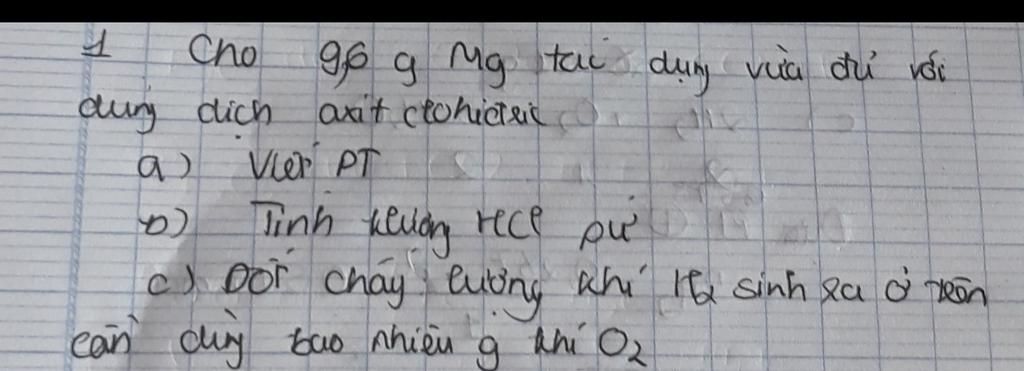 1 Cho 9,6 g Mg tác dụng vừa đủ với
dung dịch axit clohiđric
a) Viết PT
b) Tính klượng HCl pư
c) Đốt cháy lượng khí H2 sinh ra ở trên
cần dùng bao nhiêu g khí O2